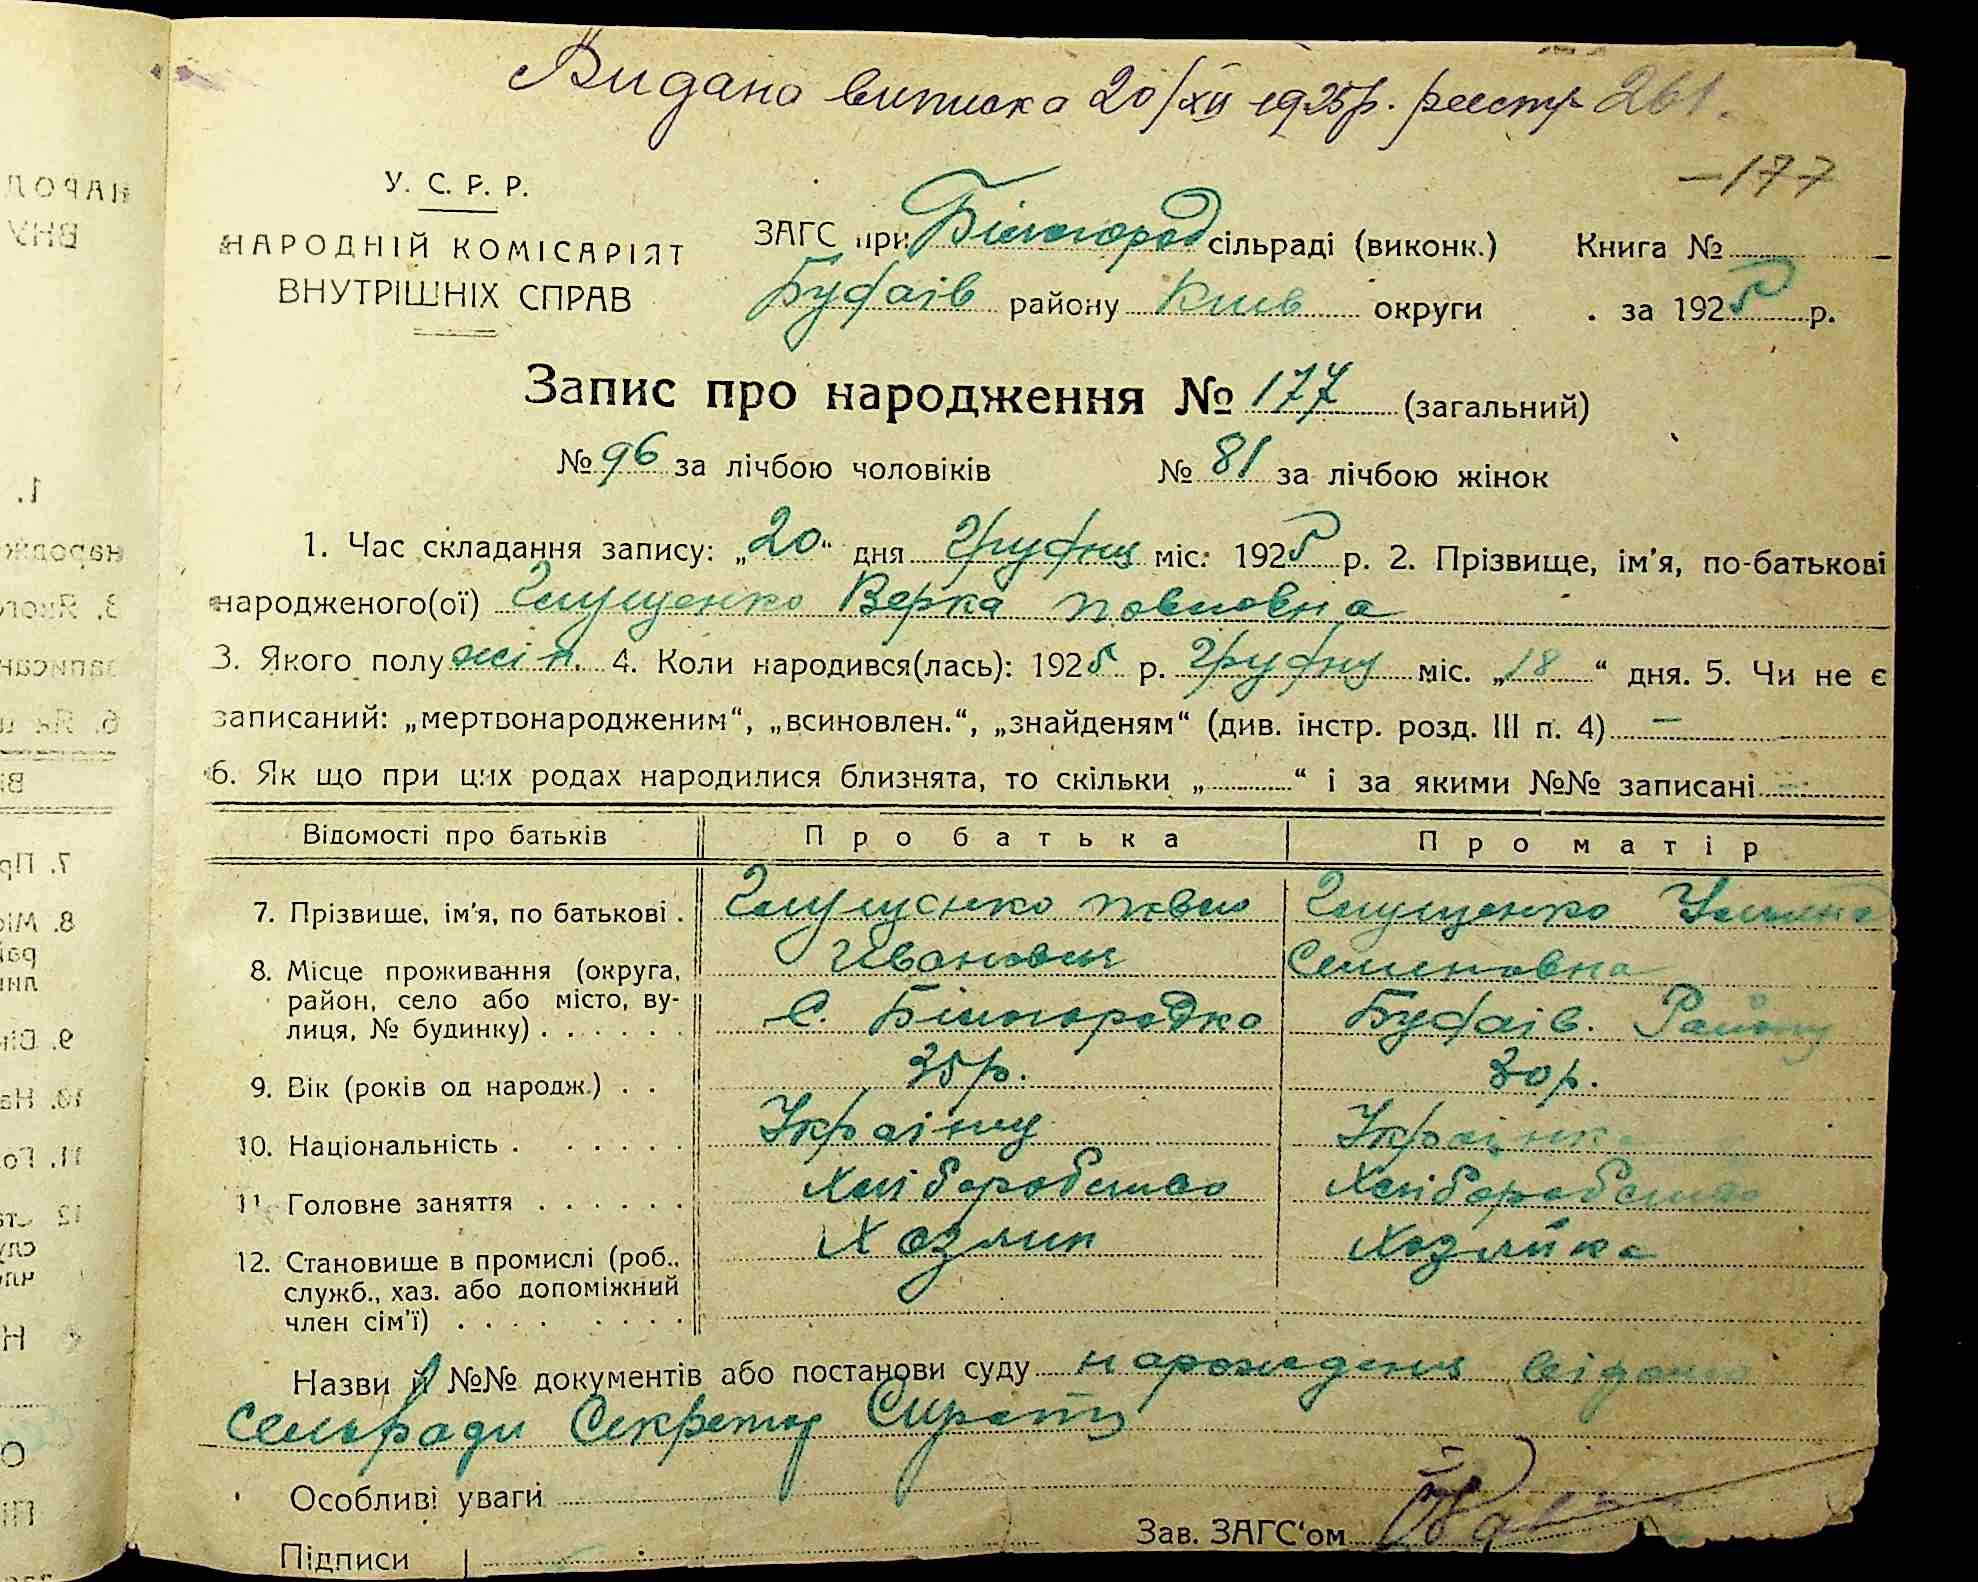 Видано виписка 20/XII 1925р. реєстр 261.
-177
У. С. Р. Р.
НАРОДНІЙ КОМІСАРІЯТ
ВНУТРІШНІХ СПРАВ
ЗАГС при Білогород сільраді (виконк.) Книга №
Будаів району Київ округи за 1925 р.
Запис про народження № 177 (загальний)
№ 96 за лічбою чоловіків № 81 за лічбою жінок
1. Час складання запису: „20“ дня Грудня міс. 1925 р. 2. Прізвище, ім'я, по-батькові
народженого(ої) Глущенко Верка Повловна
3. Якого полу жін. 4. Коли народився(лась): 1925 р. Грудня міс. „18“ дня. 5. Чи не є
записаний: „мертвонародженим“, „всиновлен.“, „знайденям“ (див. інстр. розд. III п. 4) —
6. Як що при цих родах народилися близнята, то скільки „ “ і за якими №№ записані —
Відомості про батьків Про батька Про матір
7. Прізвище, ім'я, по батькові . Глущенко Повло Глущенко Уляна
Ивановичь Семеновна
8. Місце проживання (округа, район, село або місто, вулиця, № будинку) . . . . . . С. Білогородка Будаів. Району
9. Вік (років од народж.) . . 35р. 30р.
10. Національність . . . . . . Украінц Украінка
11. Головне заняття . . . . . . Хліборобство Хліборобство
12. Становище в промислі (роб., служб., хаз. або допоміжний член сім'ї) . . . . . . . . Хозяин Хозяйка
Назви й №№ документів або постанови суду нарождения
сельради Секретар Сирота
Особливі уваги
Зав. ЗАГС'ом
Підписи